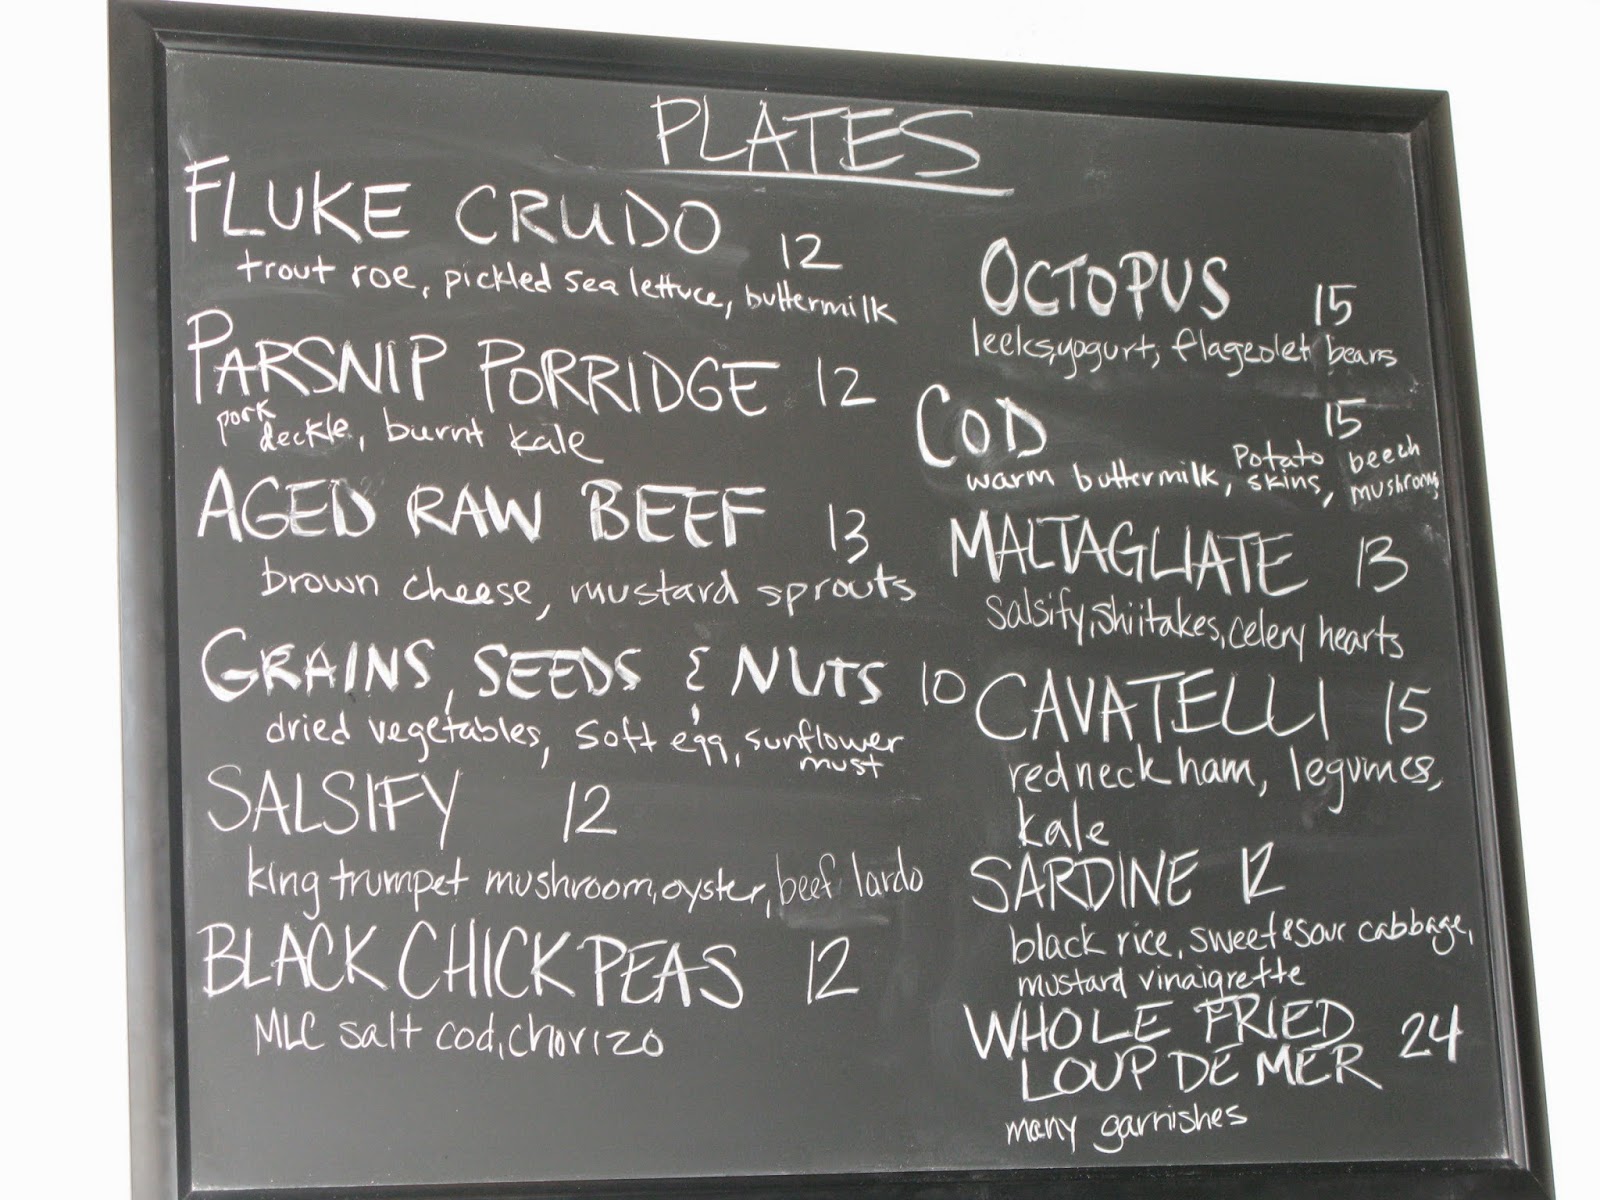 PLATES
FLUKE CRUDO 12
trout roe, pickled sea lettuce, buttermilk
PARSNIP PORRIDGE 12
pork
deckle, burnt kale
AGED RAW BEEF 13
brown cheese, mustard sprouts
GRAINS, SEEDS & NUTS 10
dried vegetables, soft egg, sunflower
must
SALSIFY 12
king trumpet mushroom, oyster, beef lardo
BLACK CHICKPEAS 12
MLC salt cod, chorizo
OCTOPUS 15
leeks, yogurt, flageolet beans
COD 15
warm buttermilk, potato skins, beech mushrooms
MALTAGLIATE 13
salsify, shiitakes, celery hearts
CAVATELLI 15
redneck ham, legumes,
kale
SARDINE 12
black rice, sweet & sour cabbage,
mustard vinaigrette
WHOLE FRIED 24
LOUP DE MER
many garnishes